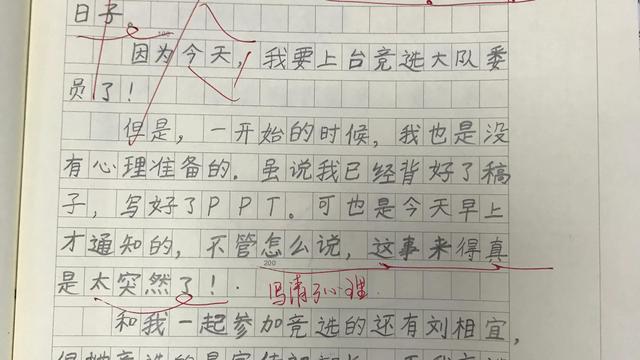 日子。
因为今天，我要上台竞选大队委
员了！
但是，一开始的时候，我也是没
有心理准备的。虽说我已经背好了稿
子，写好了PPT。可也是今天早上
才通知的，不管怎么说，这事来得真
200
是太突然了！
写清了心理.
和我一起参加竞选的还有刘相宜，